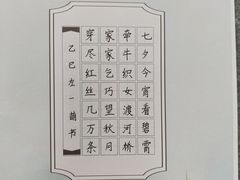 七夕今宵看碧霄
牵牛织女渡河桥
家家乞巧望秋月
穿尽红丝几万条
乙巳左一书